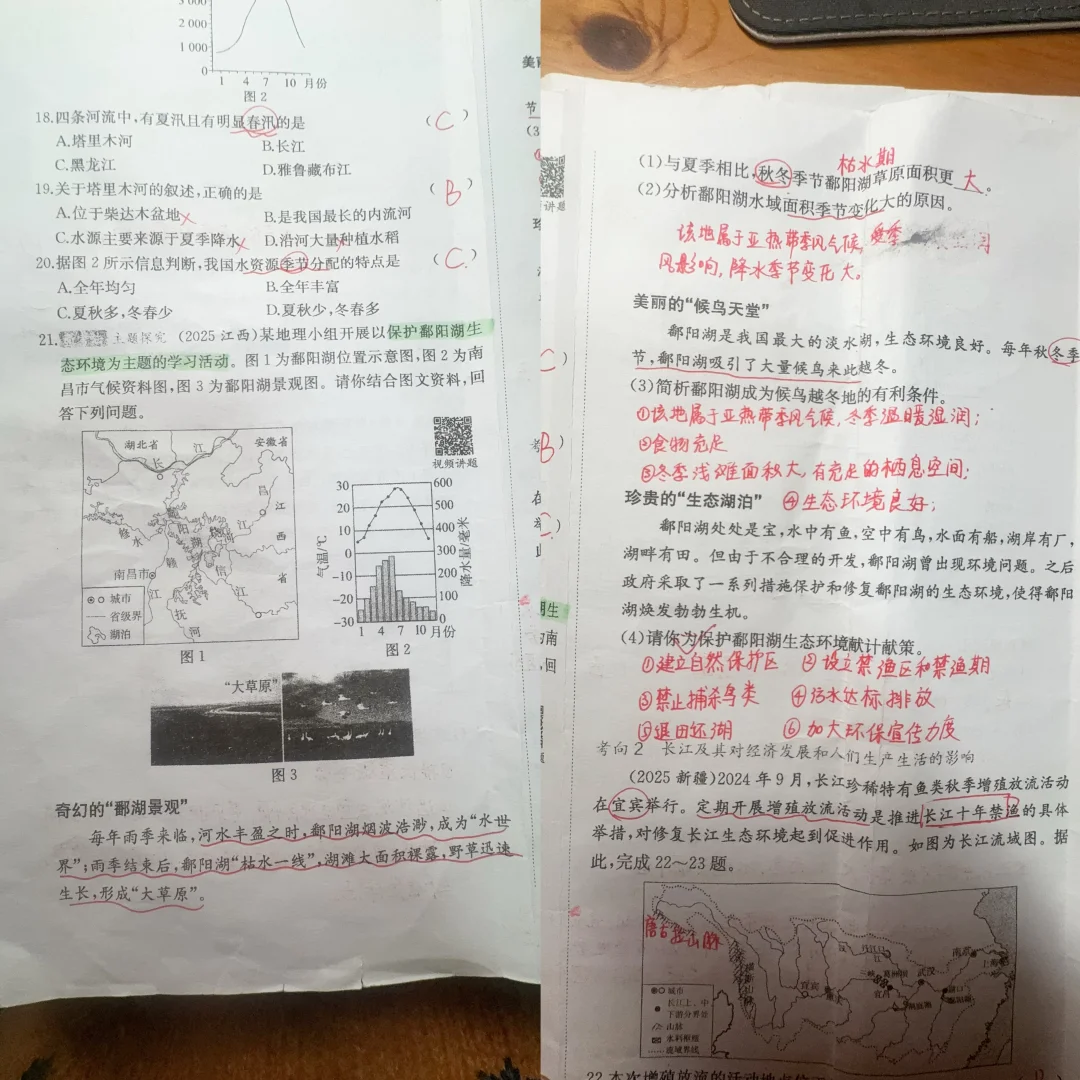 3 000
2 000
1 000
0
1 4 7 10 月份
图 2
18.四条河流中,有夏汛且有明显春汛的是 ( C )
A.塔里木河 B.长江
C.黑龙江 D.雅鲁藏布江
19.关于塔里木河的叙述,正确的是 ( B )
A.位于柴达木盆地 B.是我国最长的内流河
C.水源主要来源于夏季降水 D.沿河大量种植水稻
20.据图 2 所示信息判断,我国水资源季节分配的特点是 ( C )
A.全年均匀 B.全年丰富
C.夏秋多,冬春少 D.夏秋少,冬春多
21. 主题探究 (2025 江西)某地理小组开展以保护鄱阳湖生
态环境为主题的学习活动。图 1 为鄱阳湖位置示意图,图 2 为南
昌市气候资料图,图 3 为鄱阳湖景观图。请你结合图文资料,回
答下列问题。
视频讲题
湖北省 长 江 安徽省
昌 江
鄱阳湖
修水
赣 信 江 西
南昌市
江 江 省
抚
河
城市
省级界
湖泊
图 1
气温/℃ 降水量/毫米
30 600
20 500
10 400
0 300
-10 200
-20 100
-30 0
1 4 7 10 月份
图 2
“大草原”
图 3
奇幻的“鄱湖景观”
每年雨季来临,河水丰盈之时,鄱阳湖烟波浩渺,成为“水世
界”;雨季结束后,鄱阳湖“枯水一线”,湖滩大面积裸露,野草迅速
生长,形成“大草原”。
枯水期
(1)与夏季相比,秋冬季节鄱阳湖草原面积更 大 。
(2)分析鄱阳湖水域面积季节变化大的原因。
该地属于亚热带季风气候,受季
风影响,降水季节变化大。
美丽的“候鸟天堂”
鄱阳湖是我国最大的淡水湖,生态环境良好。每年秋冬季
节,鄱阳湖吸引了大量候鸟来此越冬。
(3)简析鄱阳湖成为候鸟越冬地的有利条件。
①该地属于亚热带季风气候,冬季温暖湿润;
②食物充足
③冬季浅滩面积大,有充足的栖息空间;
珍贵的“生态湖泊” ④生态环境良好;
鄱阳湖处处是宝,水中有鱼,空中有鸟,水面有船,湖岸有厂,
湖畔有田。但由于不合理的开发,鄱阳湖曾出现环境问题。之后
政府采取了一系列措施保护和修复鄱阳湖的生态环境,使得鄱阳
湖焕发勃勃生机。
(4)请你为保护鄱阳湖生态环境献计献策。
①建立自然保护区 ②设立禁渔区和禁渔期
③禁止捕杀鸟类 ④污水达标排放
⑤退田还湖 ⑥加大环保宣传力度
考向 2 长江及其对经济发展和人们生产生活的影响
(2025 新疆)2024 年 9 月,长江珍稀特有鱼类秋季增殖放流活动
在宜宾举行。定期开展增殖放流活动是推进长江十年禁渔的具体
举措,对修复长江生态环境起到促进作用。如图为长江流域图。据
此,完成 22～23 题。
唐古拉山脉
横断山脉
宜宾
三峡
宜昌
武汉
湖口
南京
上海
城市
长江上、中、
下游分界点
山脉
水利枢纽
流域界线